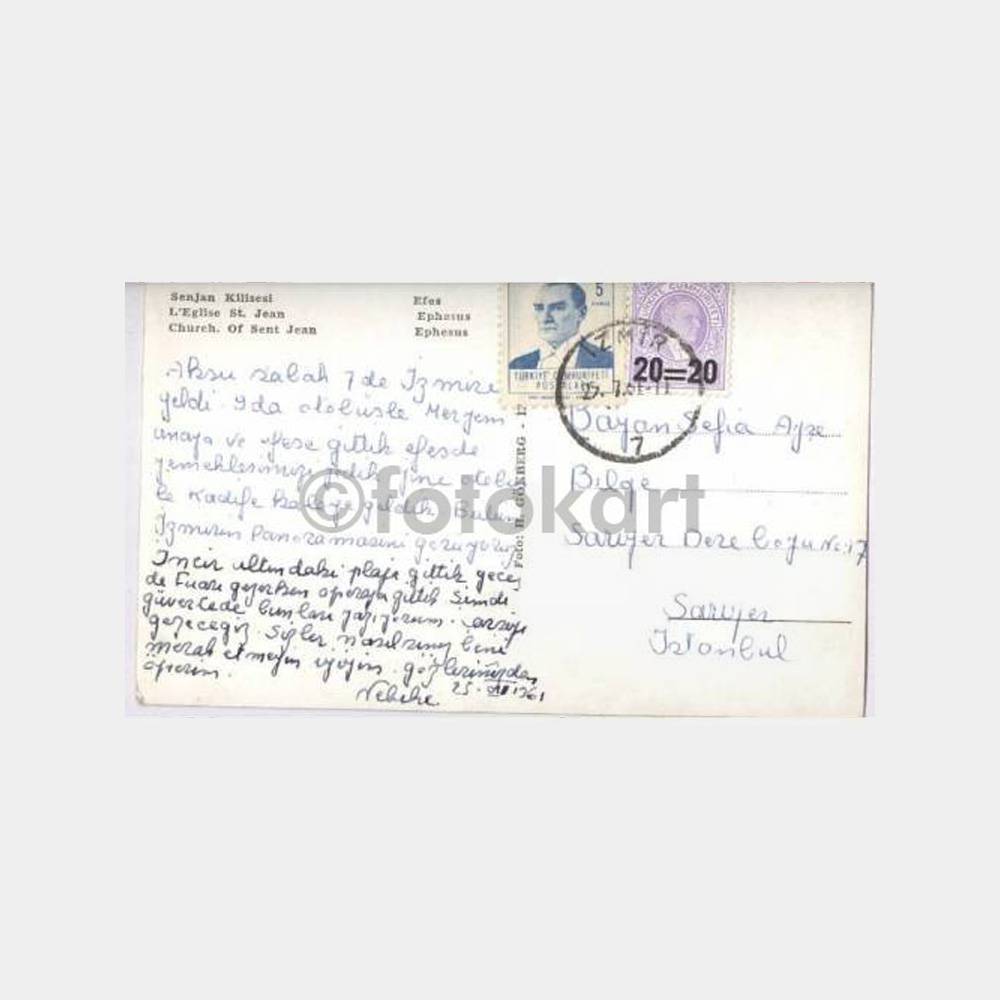 Senjan Kilisesi
L'Eglise St. Jean
Church. Of Sent Jean
Efes
Ephasus
Ephesus
5
TÜRKİYE CUMHURİYETİ
POSTALARI
20=20
İZMİR
25. 7.61-11
7
Aksu sabah 7 de İzmire
geldi. 9 da otobüsle Meryem
anaya ve efese gittik efesde
yemeklerimizi yedik yine otobüs
le Kadife kaleye geldik Bütün
İzmirin Panoramasını görüyoruz
İncir altındaki plaja gittik gece
de Fuarı gezerken operaya gittik Şimdi
güvertede bunları yazıyorum.
gezeceğiz. Sizler nasılsınız beni
merak etmeyin iyiyim. gözlerinizden
öperim.
25. 1961
Foto: H. GÖKBERG - 12
Bayan Sefia Ayşe
Bilge
Sarıyer Dere boyu No: 17
Sarıyer
İstanbul
©fotokart